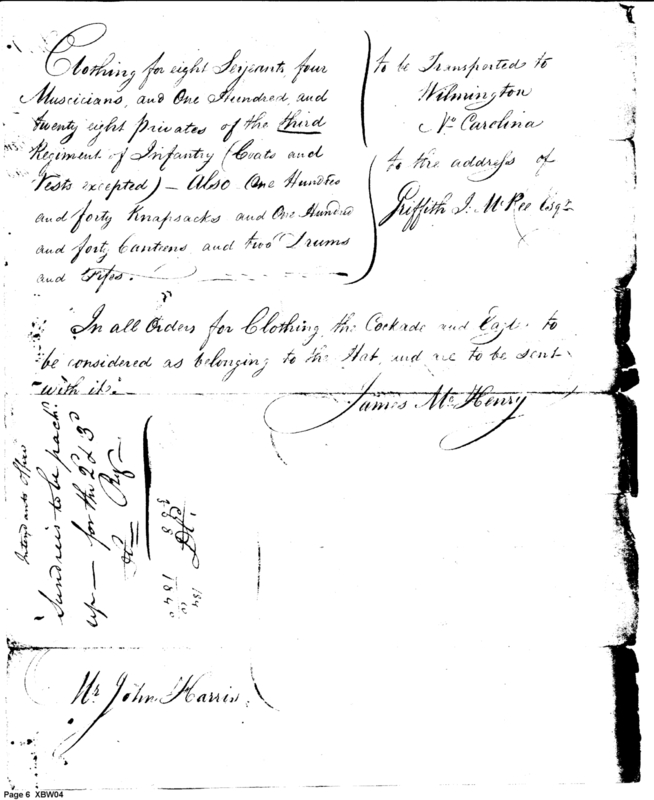 Clothing for eight Serjeants, four
Muscicians, and One Hundred and
twenty eight Privates of the third
Regiment of Infantry (Coats and
Vests excepted) — Also One Hundred
and forty Knapsacks and One Hundred
and forty Canteens and two Drums
and Fifes.
to be Transported to
Wilmington
No Carolina
to the address of
Griffith J. McRee Esqr
In all Orders for Clothing, the Cockade and Eagle to
be considered as belonging to the Hat, and are to be sent
with it.
James McHenry
Sundries to be pack'd
up — for the 2d & 3d
Mr John Harris
Page 6 XBW04